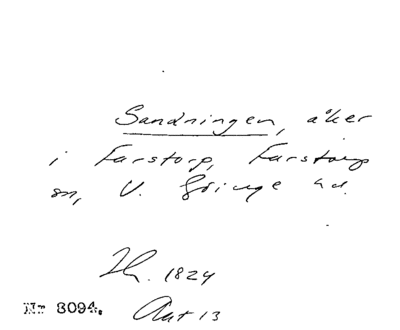 Sandningen, åker
i Farstorp, Farstorps
sn, V. Göinge hd.
Lh. 1824
Nr 3094.
Akt 13